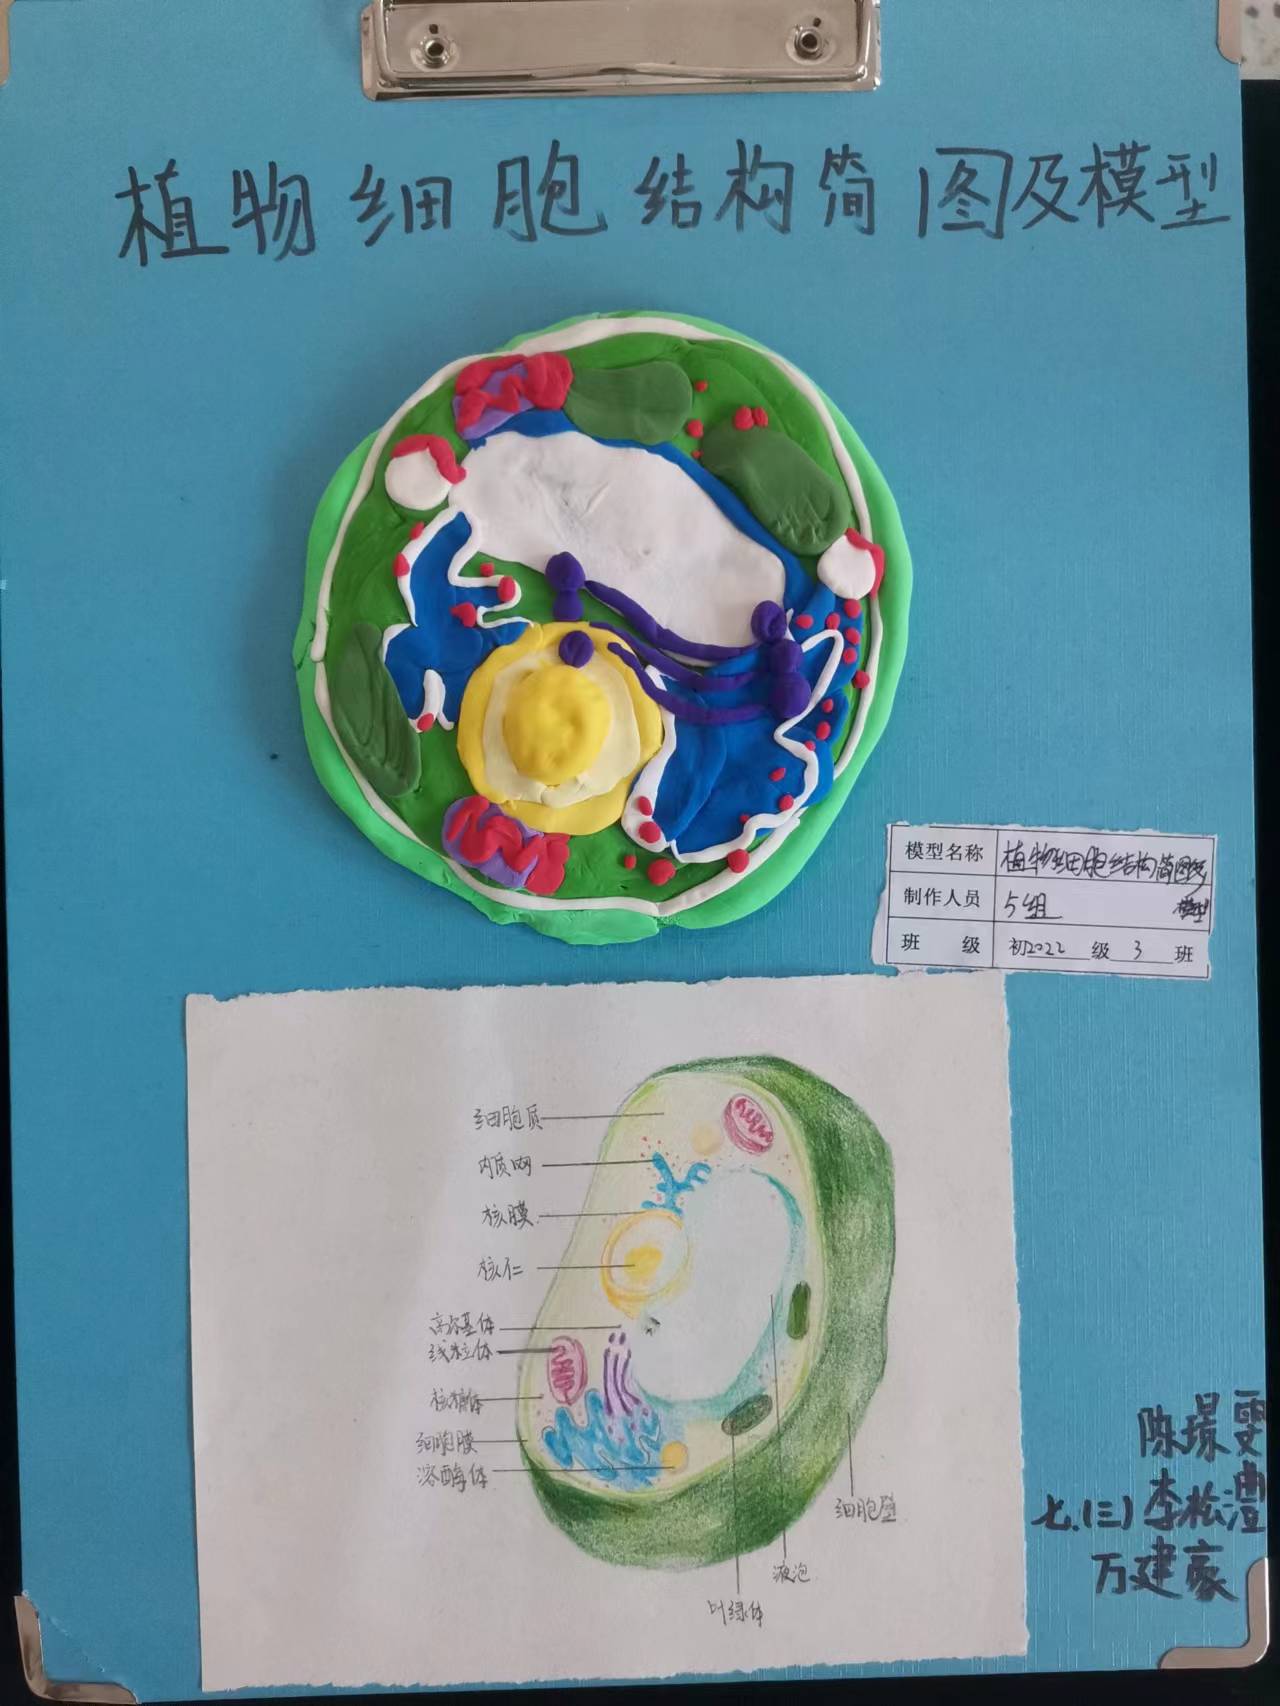 植物细胞结构简图及模型
模型名称 植物细胞结构简图及
模型
制作人员 5组
班 级 初2022 级 3 班
细胞质
内质网
核膜
核仁
高尔基体
线粒体
核糖体
细胞膜
溶酶体
细胞壁
液泡
叶绿体
陈璟雯
七.(三)李松澧
万建豪